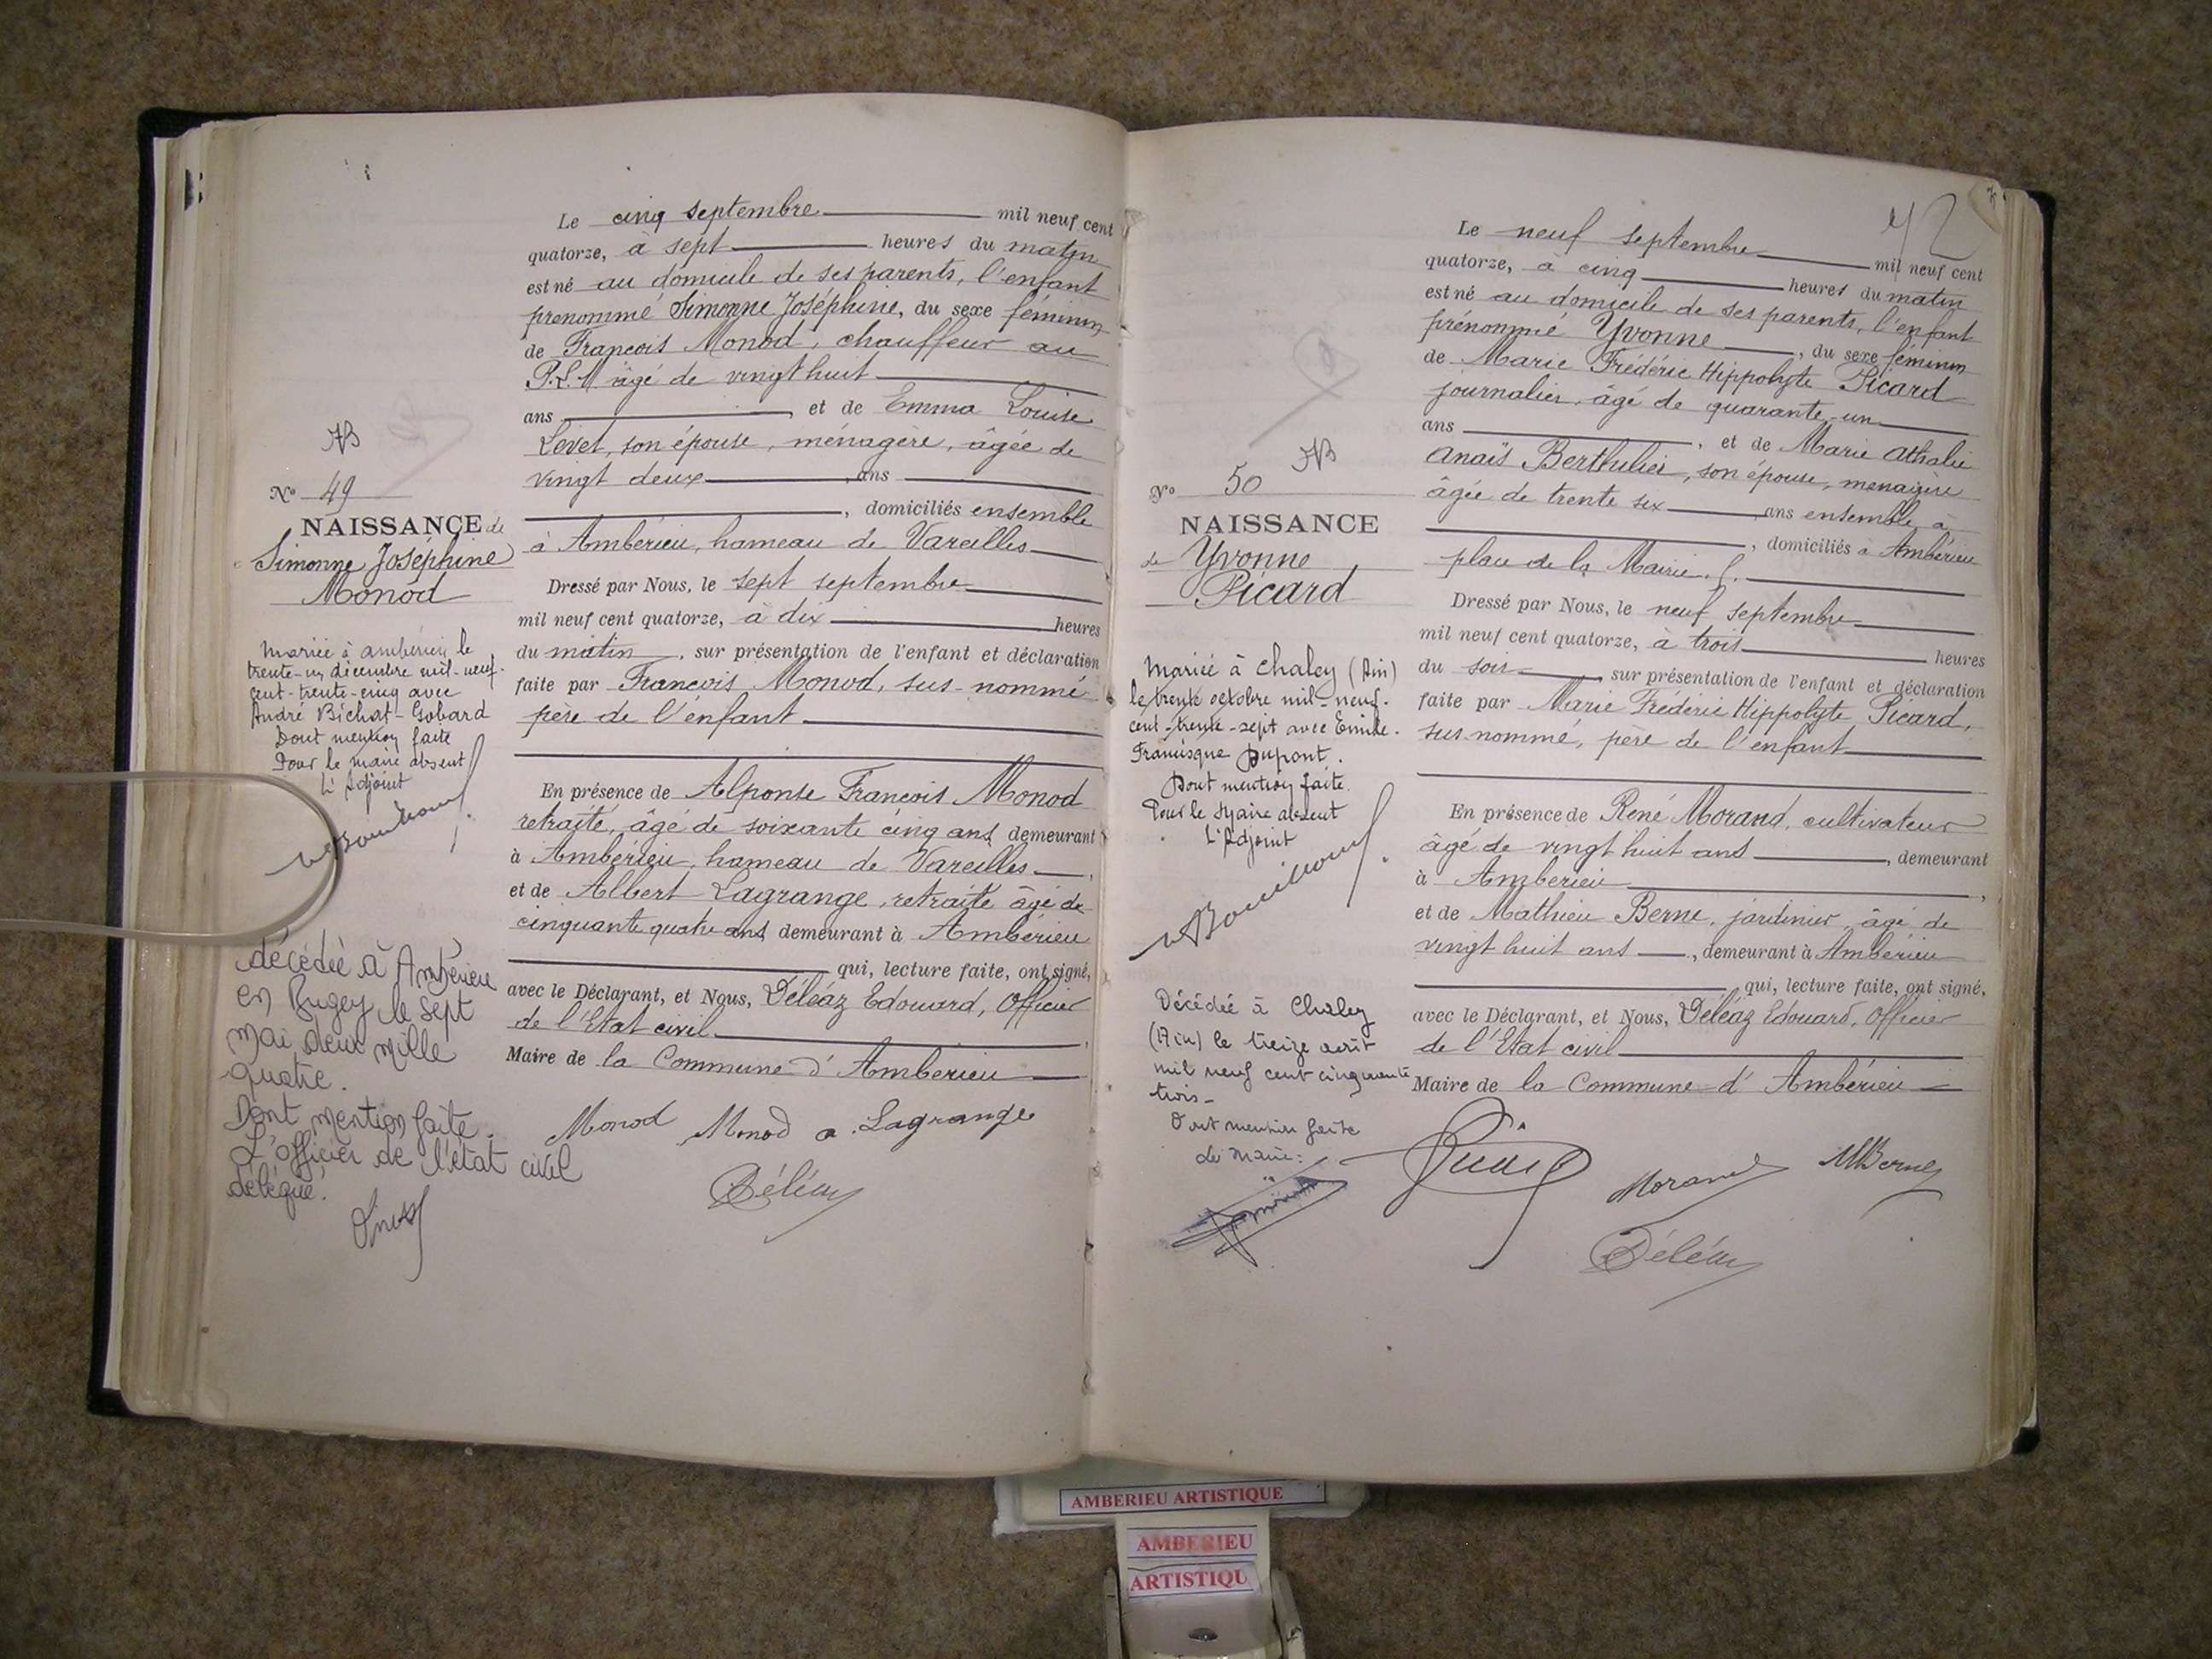 N° 49
NAISSANCE de
Simonne Joséphine
Monod
Mariée à ambérieu le
trente-un décembre mil-neuf-
cent-trente-cinq avec
André Bichat-Gobard
Dont mention faite
Pour le maire absent
L'Adjoint
décédée à Ambérieu
en Bugey le sept
mai deux mille
quatre.
Dont mention faite.
L'officier de l'état civil
délégué.
Le cinq septembre mil neuf cent
quatorze, à sept heures du matin
est né au domicile de ses parents, l'enfant
prenommé Simonne Joséphine, du sexe féminin
de François Monod, chauffeur au
P.L.M âgé de vingt huit
ans , et de Emma Louise
Levet, son épouse, ménagère, âgée de
vingt deux ans
, domiciliés ensemble
à Ambérieu, hameau de Vareilles
Dressé par Nous, le sept septembre
mil neuf cent quatorze, à dix heures
du matin , sur présentation de l'enfant et déclaration
faite par François Monod, sus-nommé
père de l'enfant
En présence de Alponse François Monod
retraité, âgé de soixante cinq ans demeurant
à Ambérieu, hameau de Vareilles ,
et de Albert Lagrange, retraité âgé de
cinquante quatre ans demeurant à Ambérieu
qui, lecture faite, ont signé,
avec le Déclarant, et Nous, Déléaz Edouard, Officier
de l'Etat civil ,
Maire de la Commune d'Ambérieu
Monod Monod a Lagrange
Déléaz
72
N° 50
NAISSANCE
de Yvonne
Picard
Mariée à Chaley (Ain)
le trente octobre mil-neuf-
cent-trente-sept avec Emile-
Francisque Dupont.
Dont mention faite.
Pour le Maire absent
L'Adjoint
Décédée à Chaley
(Ain) le treize août
mil neuf cent cinquante
trois-
Dont mention faite
Le Maire:
Le neuf septembre mil neuf cent
quatorze, à cinq heures du matin
est né au domicile de ses parents, l'enfant
prénommé Yvonne , du sexe féminin
de Marie Frédéric Hippolyte Picard
journalier, âgé de quarante-un
ans , et de Marie Athalie
Anaïs Berthelier, son épouse, menagère
âgée de trente six ans ensemble à
, domiciliés à Ambérieu
place de la Mairie.
Dressé par Nous, le neuf septembre
mil neuf cent quatorze, à trois heures
du soir , sur présentation de l'enfant et déclaration
faite par Marie Frédéric Hippolyte Picard,
sus nommé, père de l'enfant
En présence de René Morand, cultivateur
âgé de vingt huit ans , demeurant
à Ambérieu ,
et de Mathieu Berne, jardinier, âgé de
vingt huit ans , demeurant à Ambérieu
qui, lecture faite, ont signé,
avec le Déclarant, et Nous, Déléaz Edouard, Officier
de l'Etat civil
Maire de la Commune d'Ambérieu
Morand MBerne
Déléaz
AMBERIEU ARTISTIQUE
AMBERIEU
ARTISTIQU